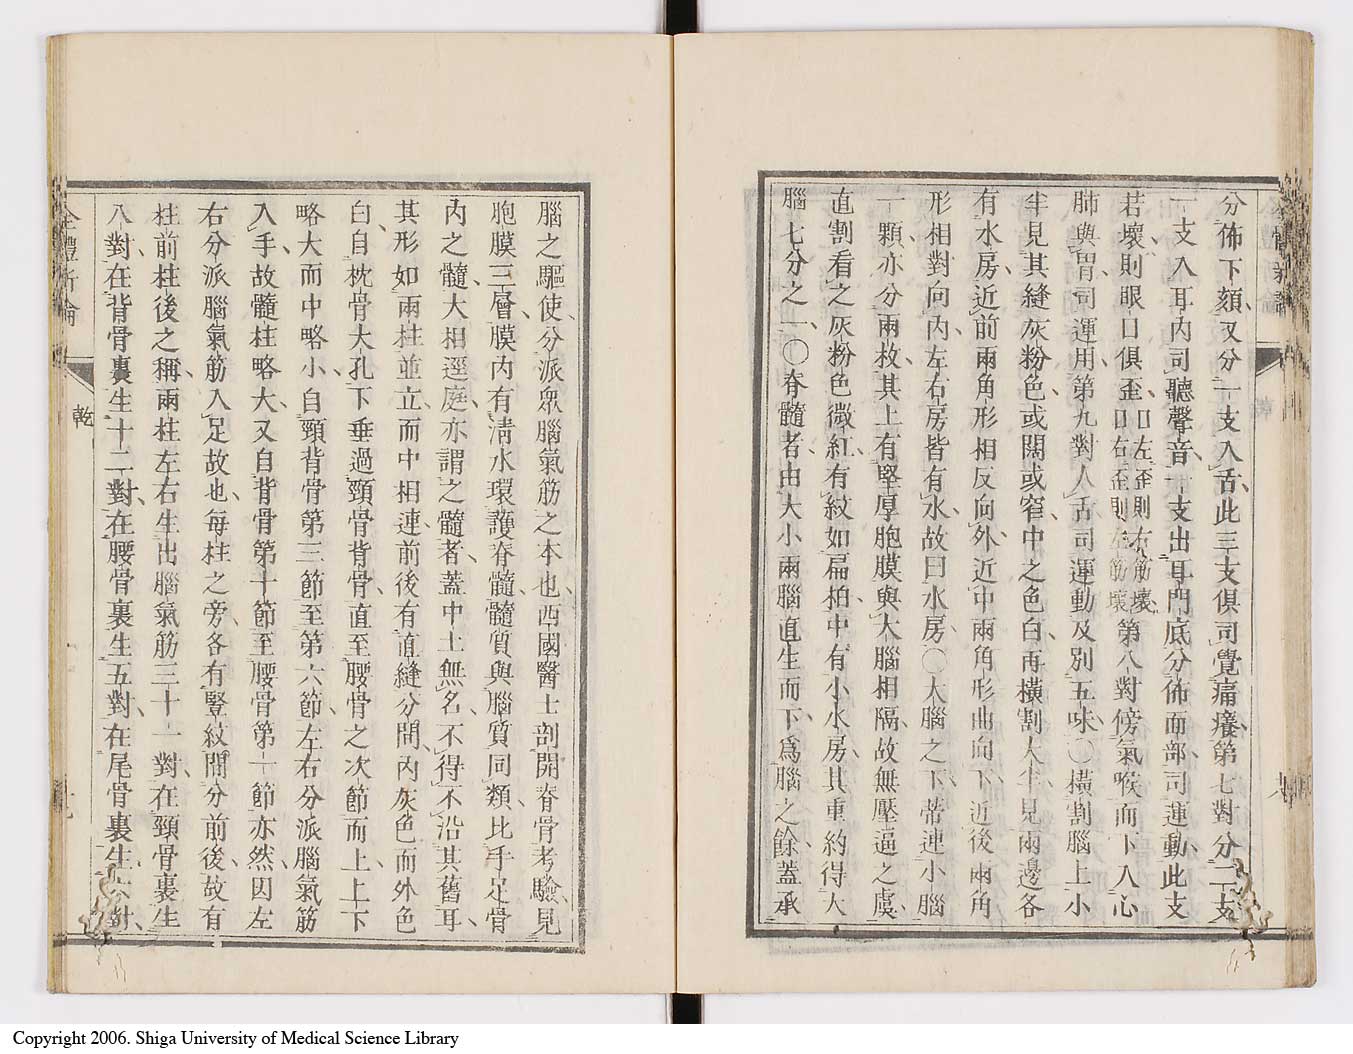 分佈下頦又分一支入舌此三支俱司覺痛癢第七對分二支
一支入耳內司聽聲音一支出耳門底分佈面部司運動此支
若壞則眼口俱歪口左歪則右筋壞口右歪則左筋壞第八對傍氣喉而下入心
肺與胃司運用第九對人舌司運動及別五味〇橫割腦上小
半見其縫灰粉色或闊或窄中之色白再橫割大半見兩邊各
有水房近前兩角形相反向外近中兩角形曲向下近後兩角
形相對向內左右房皆有水故曰水房〇大腦之下蒂連小腦
一顆亦分兩枚其上有堅厚胞膜與大腦相隔故無壓逼之虞
直割看之灰粉色微紅有紋如扁柏中有小水房其重約得大
腦七分之一〇脊髓者由大小兩腦直生而下為腦之餘蓋承
腦之驅使分派眾腦氣筋之本也西國醫士剖開脊骨考驗見
胞膜三層膜內有清水環護脊髓髓質與腦質同類比手足骨
內之髓大相逕庭亦謂之髓者蓋中土無名不得不沿其舊耳
其形如兩柱並立而中相連前後有直縫分間內灰色而外色
白自枕骨大孔下垂過頸骨背骨直至腰骨之次節而上上下
略大而中略小自頸背骨第三節至第六節左右分派腦氣筋
入手故髓柱略大又自背骨第十節至腰骨第一節亦然因左
右分派腦氣筋入足故也每柱之旁各有豎紋間分前後故有
柱前柱後之稱兩柱左右生出腦氣筋三十一對在頸骨裏生
八對在背骨裏生十二對在腰骨裏生五對在尾骨裏生六對
全體新論
乾
Copyright 2006. Shiga University of Medical Science Library